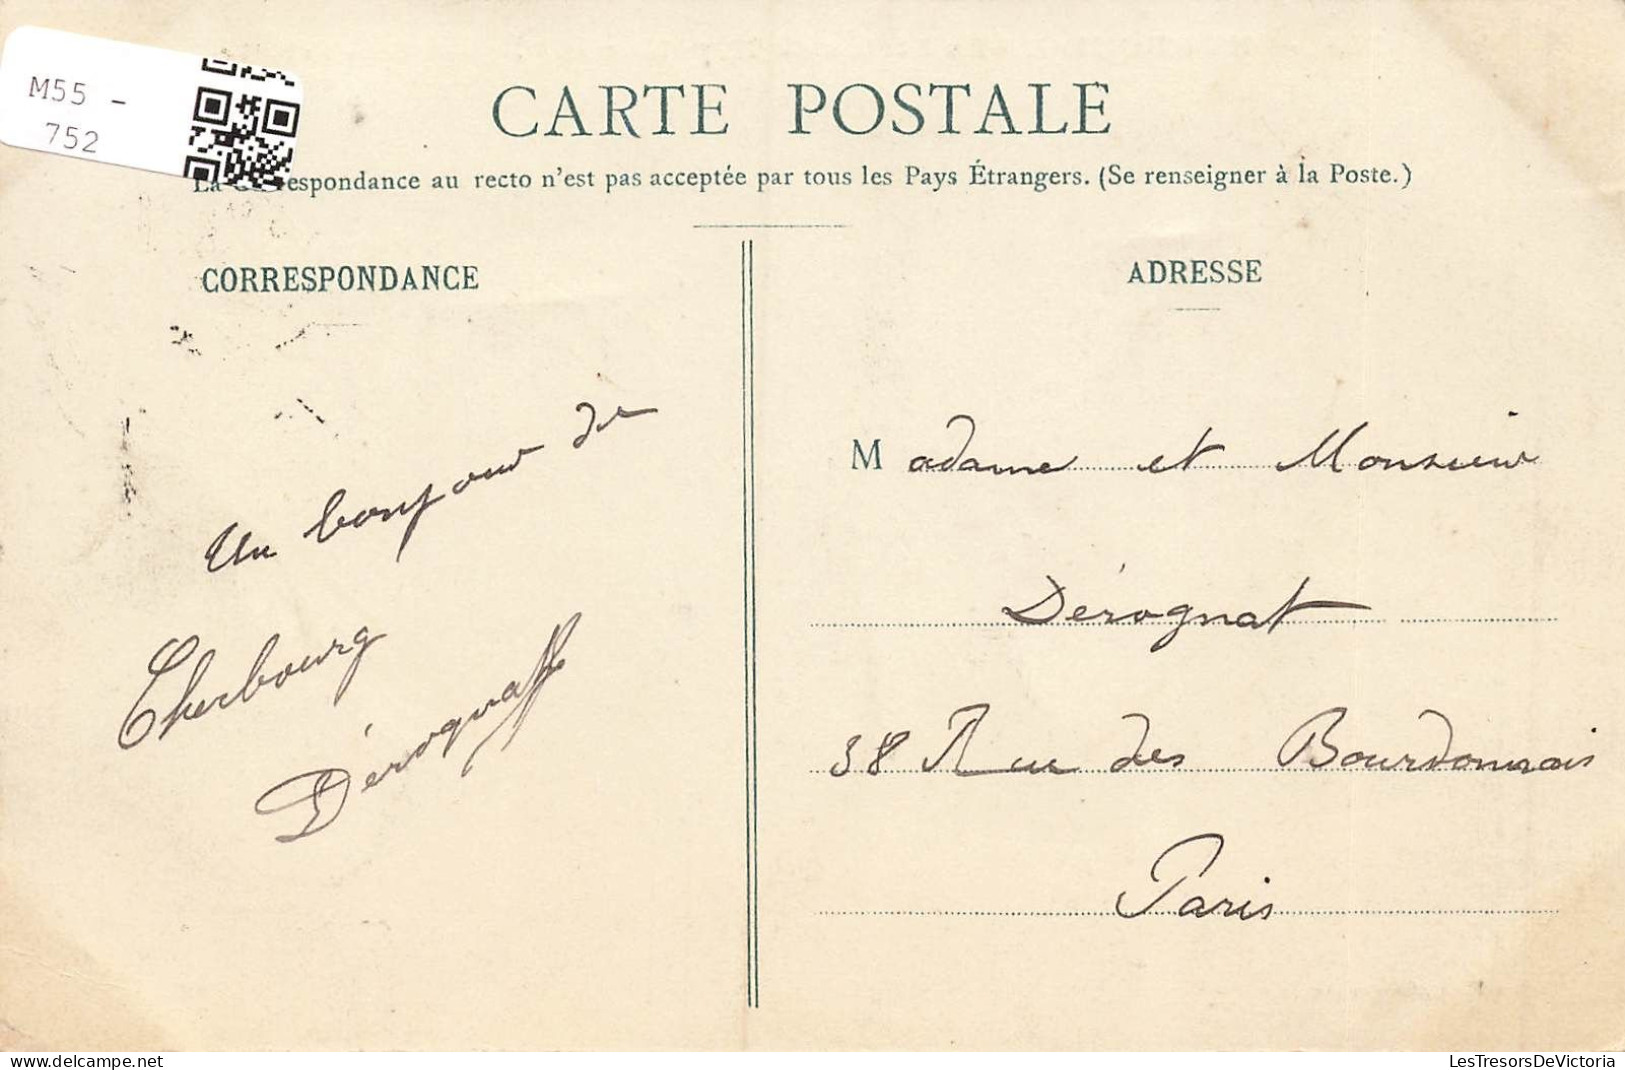 M55 -
752
CARTE POSTALE
La Correspondance au recto n'est pas acceptée par tous les Pays Étrangers. (Se renseigner à la Poste.)
CORRESPONDANCE
Un bonjour de
Cherbourg
Dérognat
ADRESSE
Madame et Monsieur
Dérognat
38 Rue des Bourdonnais
Paris
www.delcampe.net
LesTresorsDeVictoria